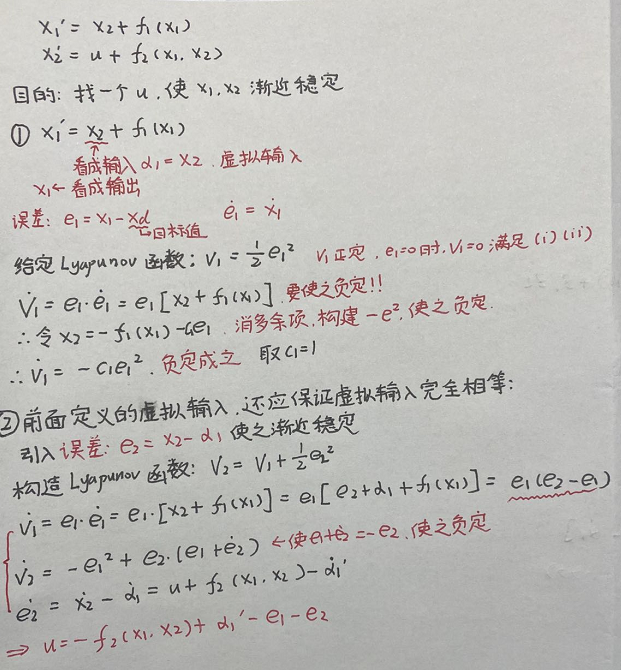 x₁′ = x₂ + f₁(x₁)
x₂′ = u + f₂(x₁, x₂)
目的: 找一个 u, 使 x₁, x₂ 渐近稳定
① x₁′ = x₂ + f₁(x₁)
看成输入 α₁ = x₂ . 虚拟输入
x₁ ← 看成输出
误差: e₁ = x₁ - xd ė₁ = ẋ₁
↳目标值
给定 Lyapunov 函数: V₁ = ½e₁² V₁正定, e₁=0时, V₁=0 满足 (i) (ii)
V̇₁ = e₁·ė₁ = e₁[x₂ + f₁(x₁)] 要使之负定!!
∴令 x₂ = -f₁(x₁) - c₁e₁ 消多余项, 构建 -e², 使之负定.
∴ V̇₁ = -c₁e₁². 负定成立 取c₁=1
② 前面定义的虚拟输入, 还应保证虚拟输入完全相等:
引入误差: e₂ = x₂ - α₁ 使之渐近稳定
构造 Lyapunov 函数: V₂ = V₁ + ½e₂²
V̇₁ = e₁·ė₁ = e₁·[x₂ + f₁(x₁)] = e₁[e₂ + α₁ + f₁(x₁)] = e₁(e₂ - e₁)
V̇₂ = -e₁² + e₂·(e₁ + ė₂) ← 使e₁+ė₂ = -e₂, 使之负定
ė₂ = ẋ₂ - α̇₁ = u + f₂(x₁, x₂) - α̇₁′
⇒ u = -f₂(x₁, x₂) + α₁′ - e₁ - e₂